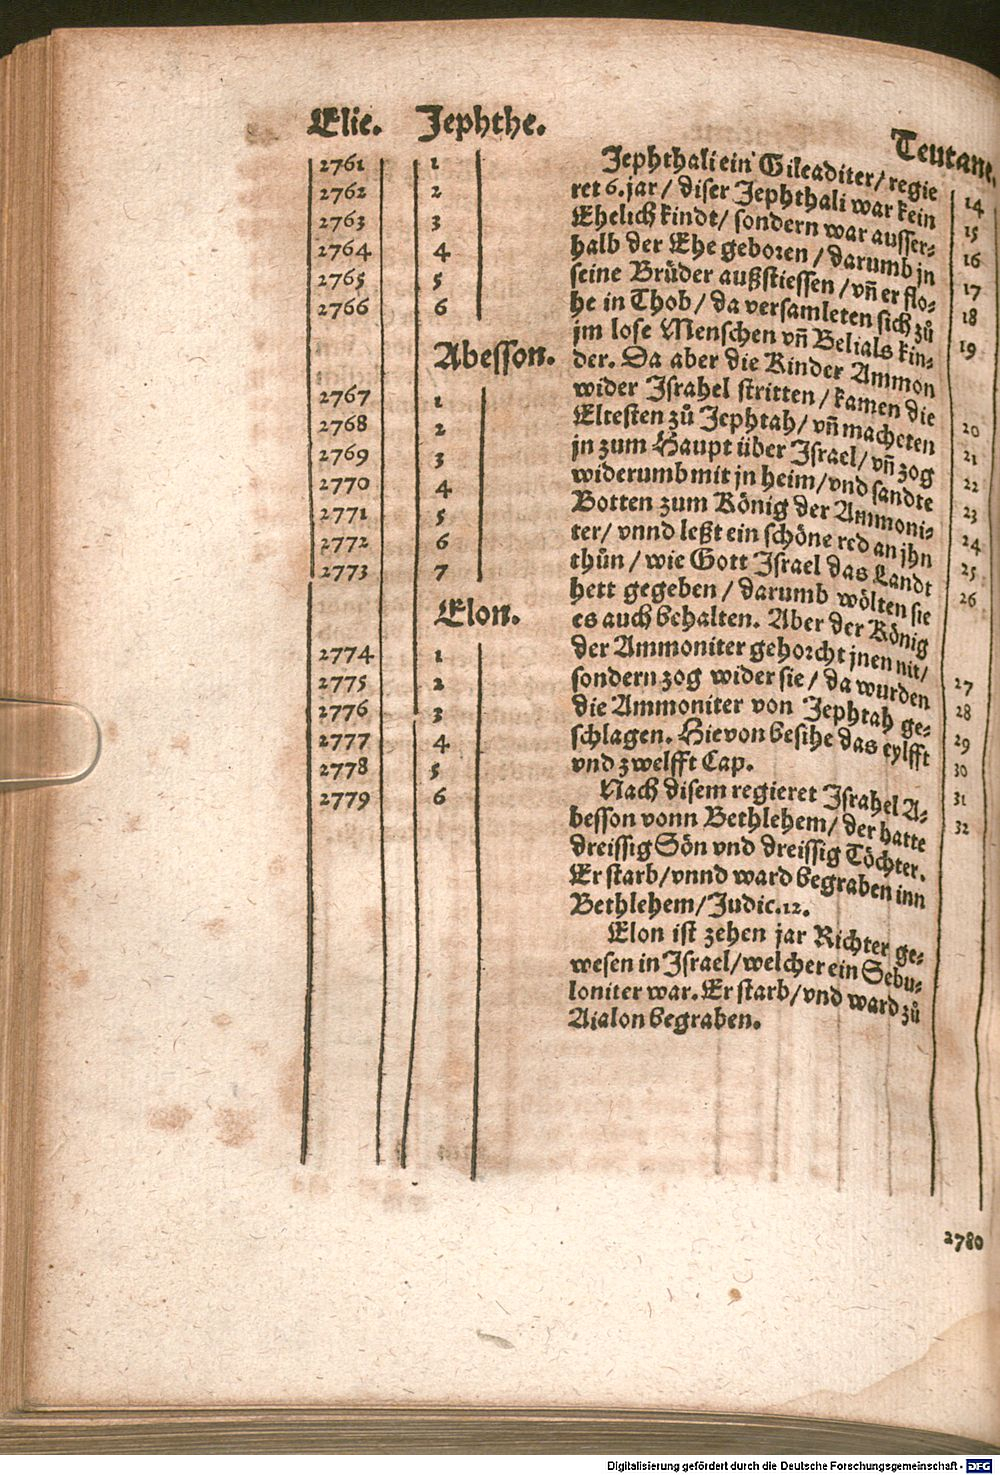 Elie. Jephthe. Teutane.
2761 1
2762 2
2763 3
2764 4
2765 5
2766 6
Abesson.
2767 1
2768 2
2769 3
2770 4
2771 5
2772 6
2773 7
Elon.
2774 1
2775 2
2776 3
2777 4
2778 5
2779 6
Jephthali ein Gileaditer/ regie
ret 6. jar/ diser Jephthali war kein
Ehelich kindt/ sondern war ausser⸗
halb der Ehe geboren/ darumb jn
seine Brüder außstiessen/ vñ er flo⸗
he in Thob/ da versamleten sich zů
jm lose Menschen vñ Belials kin⸗
der. Da aber die Kinder Ammon
wider Jsrahel stritten/ kamen die
Eltesten zů Jephtah/ vñ macheten
jn zum Haupt über Jsrael/ vñ zog
widerumb mit jn heim/ vnd sandte
Botten zum König der Ammoni⸗
ter/ vnnd leßt ein schöne red an jhn
thůn/ wie Gott Jsrael das Landt
hett gegeben/ darumb wölten sie
es auch behalten. Aber der König
der Ammoniter gehorcht jnen nit/
sondern zog wider sie/ da wurden
die Ammoniter von Jephtah ge⸗
schlagen. Hievon besihe das eylfft
vnd zwelfft Cap.
Nach disem regieret Jsrahel A⸗
besson vonn Bethlehem/ der hatte
dreissig Sön vnd dreissig Töchter.
Er starb/ vnnd ward begraben inn
Bethlehem/ Judic. 12.
Elon ist zehen jar Richter ge⸗
wesen in Jsrael/ welcher ein Sebu⸗
loniter war. Er starb/ vnd ward zů
Aialon begraben.
14
15
16
17
18
19
20
21
22
23
24
25
26
27
28
29
30
31
32
2780
Digitalisierung gefördert durch die Deutsche Forschungsgemeinschaft - DFG